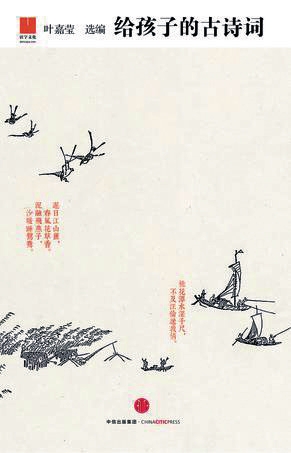 活字文化
叶嘉莹 选编 给孩子的古诗词
遲日江山麗，
春風花草香。
泥融飛燕子，
沙暖睡鴛鴦。
桃花潭水深千尺，
不及汪倫送我情。
中信出版集团·CHINACITICPRESS